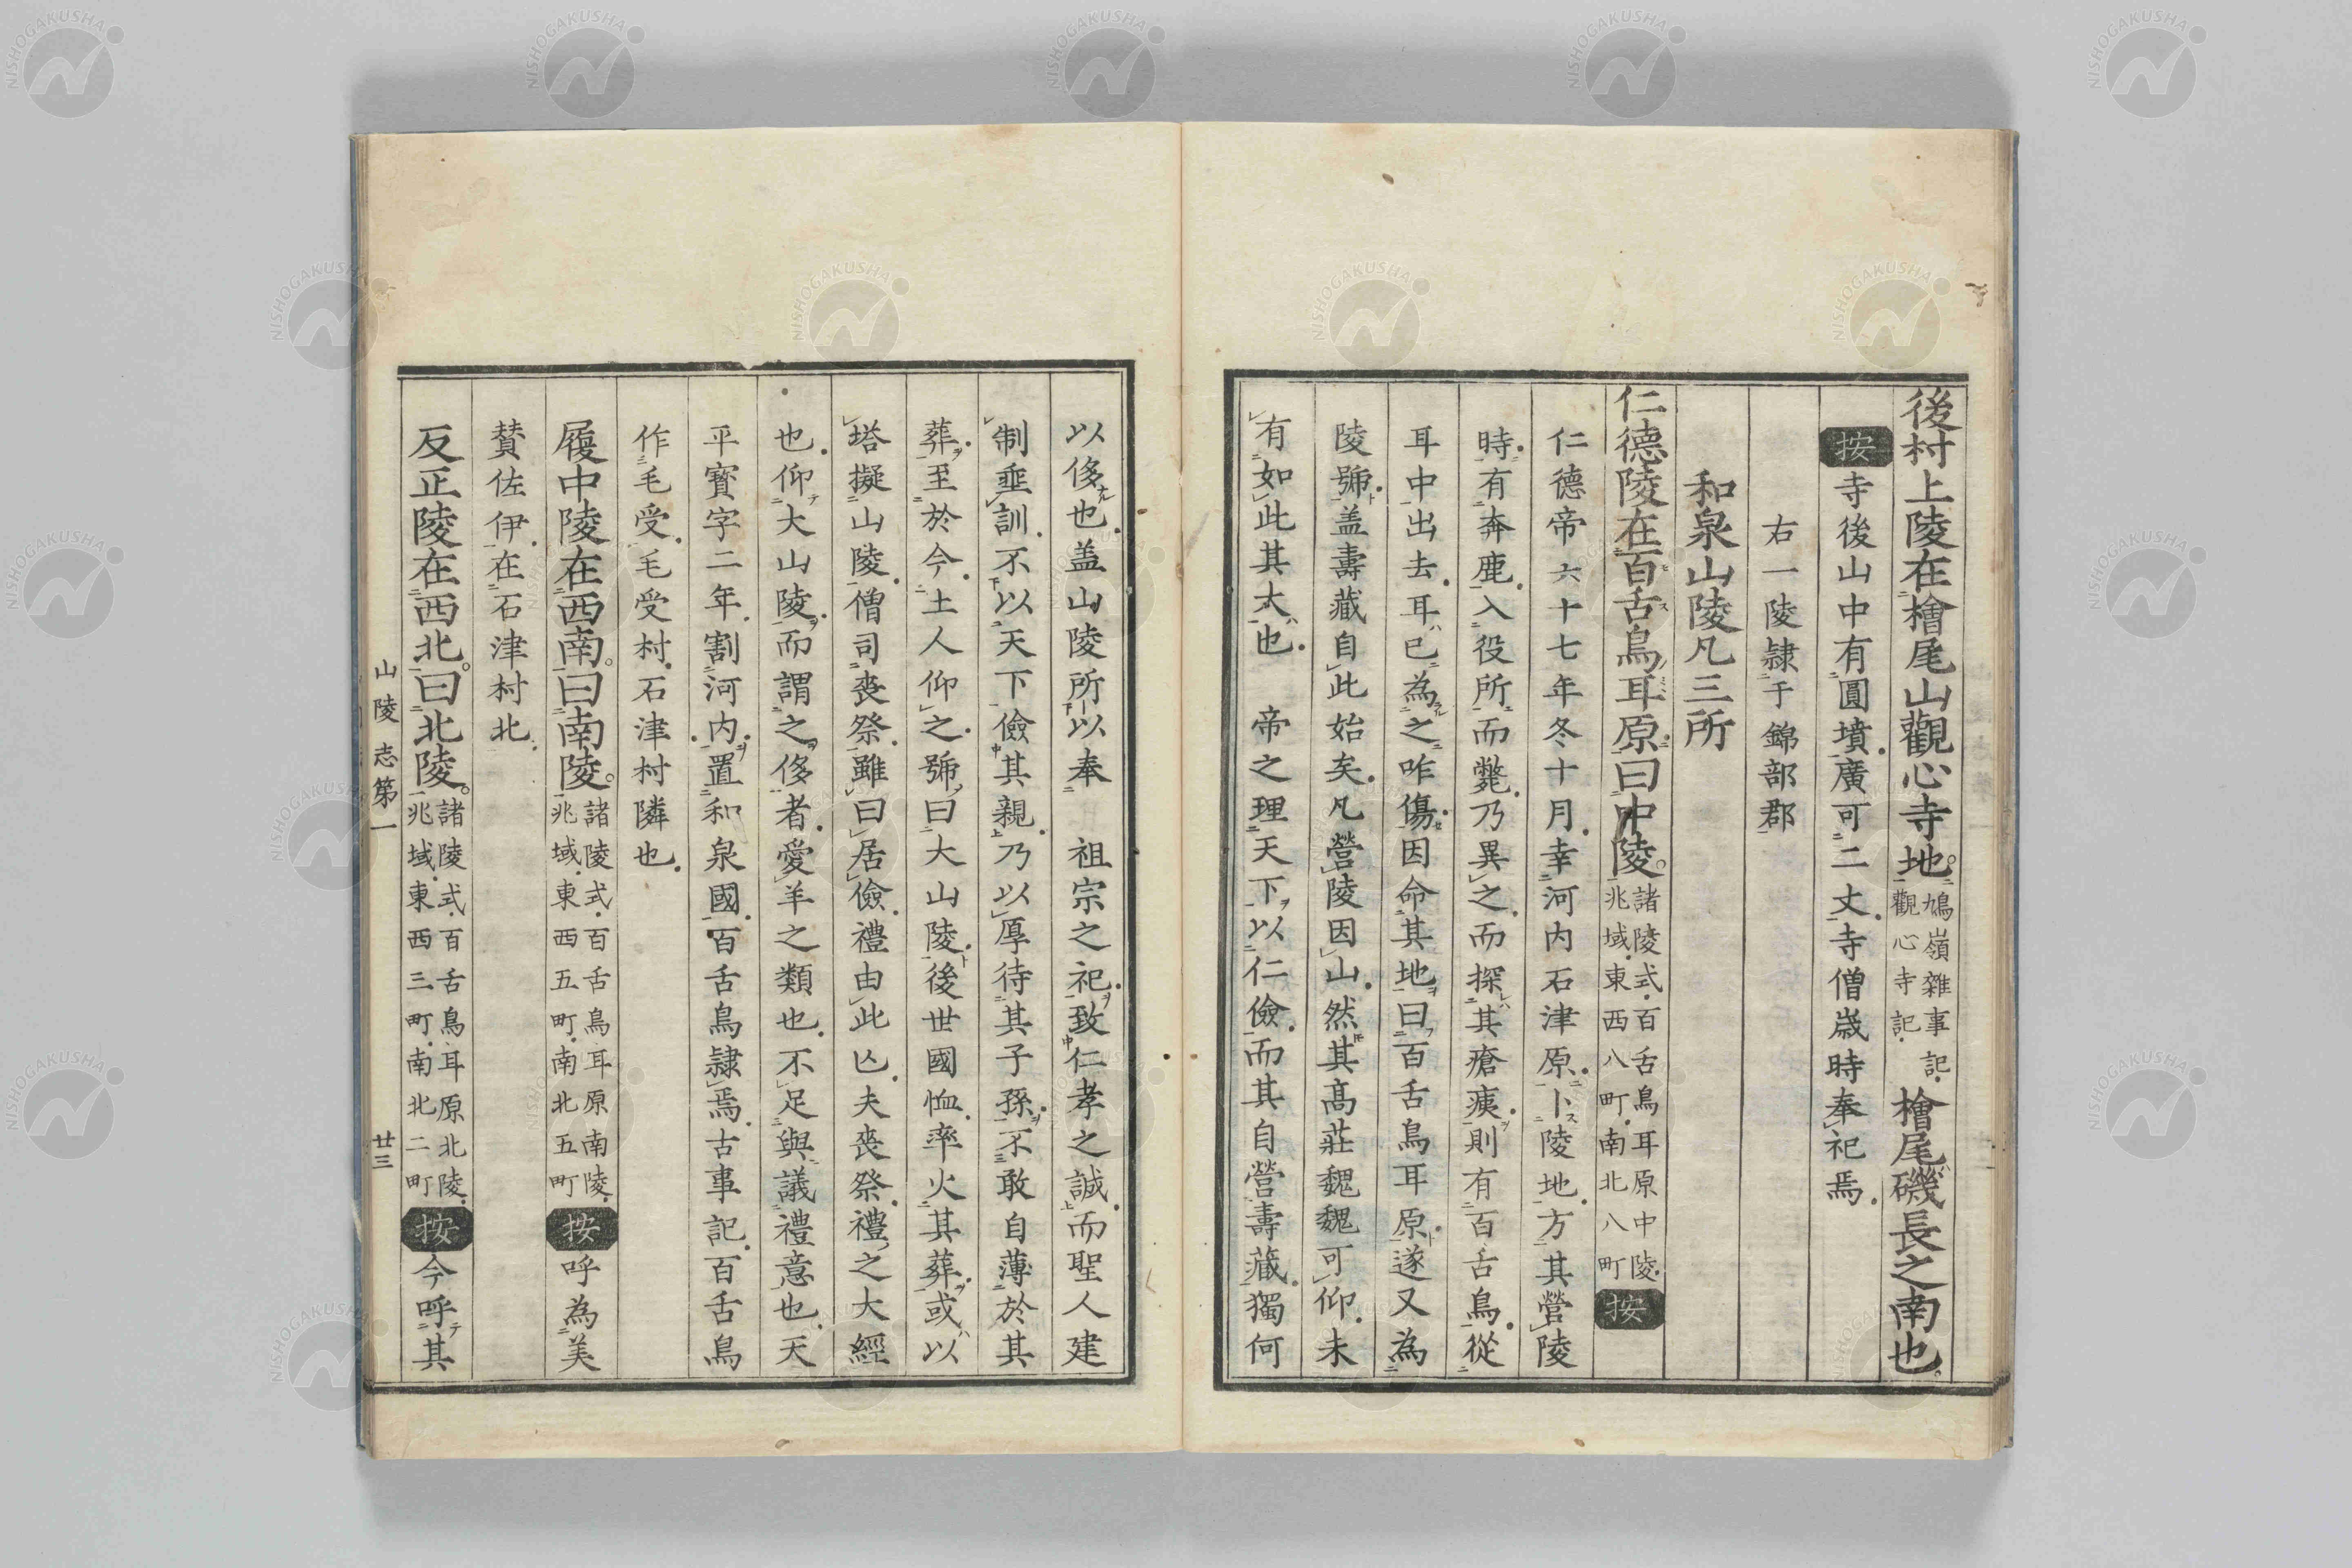 後村上陵在檜尾山觀心寺地鳩嶺雜事記觀心寺記檜尾磯長之南也
按寺後山中有圓墳廣可二丈寺僧歳時奉祀焉
右一陵隷于錦部郡
和泉山陵凡三所
仁德陵在百舌鳥耳原曰中陵諸陵式百舌鳥耳原中陵兆域東西八町南北八町按
仁德帝六十七年冬十月幸河内石津原卜陵地方其營陵
時有奔鹿入役所而斃乃異之而探其瘡痍則有百舌鳥從
耳中出去耳已為之咋傷因命其地曰百舌鳥耳原遂又為
陵號盖壽藏自此始矣凡營陵因山然其高莊魏魏可仰未
有如此其大也　帝之理天下以仁儉而其自營壽藏獨何
以侈也盖山陵所以奉　祖宗之祀致仁孝之誠而聖人建
制垂訓不以天下儉其親乃以厚待其子孫不敢自薄於其
葬至於今土人仰之號曰大山陵後世國恤率火其葬或以
塔擬山陵僧司喪祭雖曰居儉禮由此亡夫喪祭禮之大經
也仰大山陵而謂之侈者愛羊之類也不足與議禮意也天
平寳字二年割河内置和泉國百舌鳥隷焉古事記百舌鳥
作毛受毛受村石津村隣也
履中陵在西南曰南陵諸陵式百舌鳥耳原南陵兆域東西五町南北五町按呼為美
賛佐伊在石津村北
反正陵在西北曰北陵諸陵式百舌鳥耳原北陵兆域東西三町南北二町按今呼其
山陵志第一　廿三
NISHOGAKUSHA